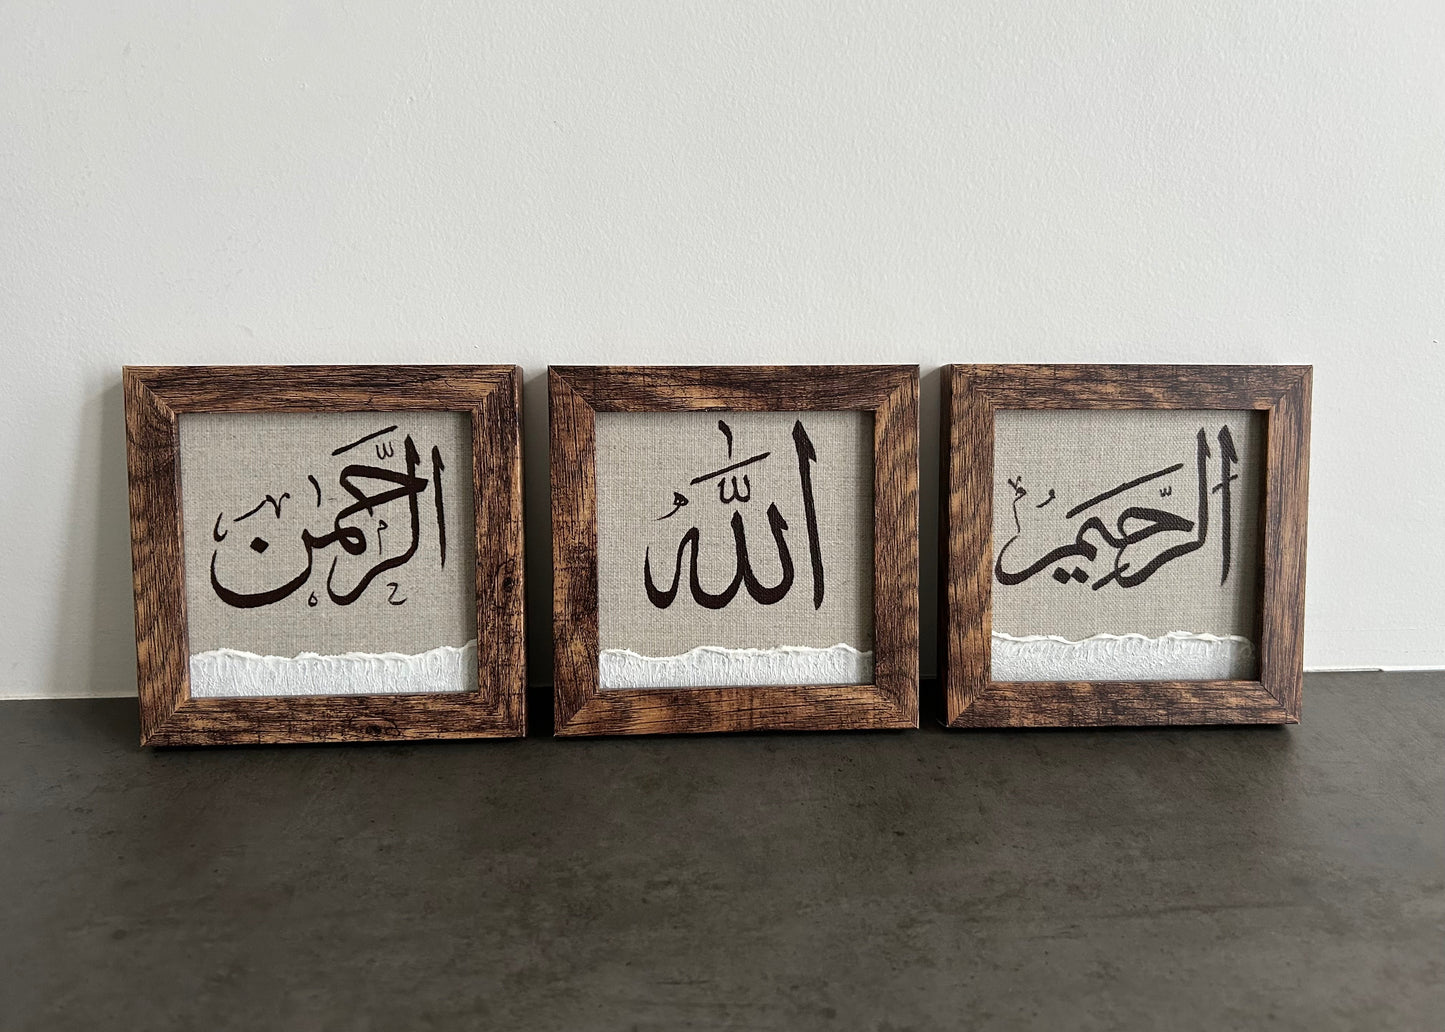 الرحيم
الله
الرحمن